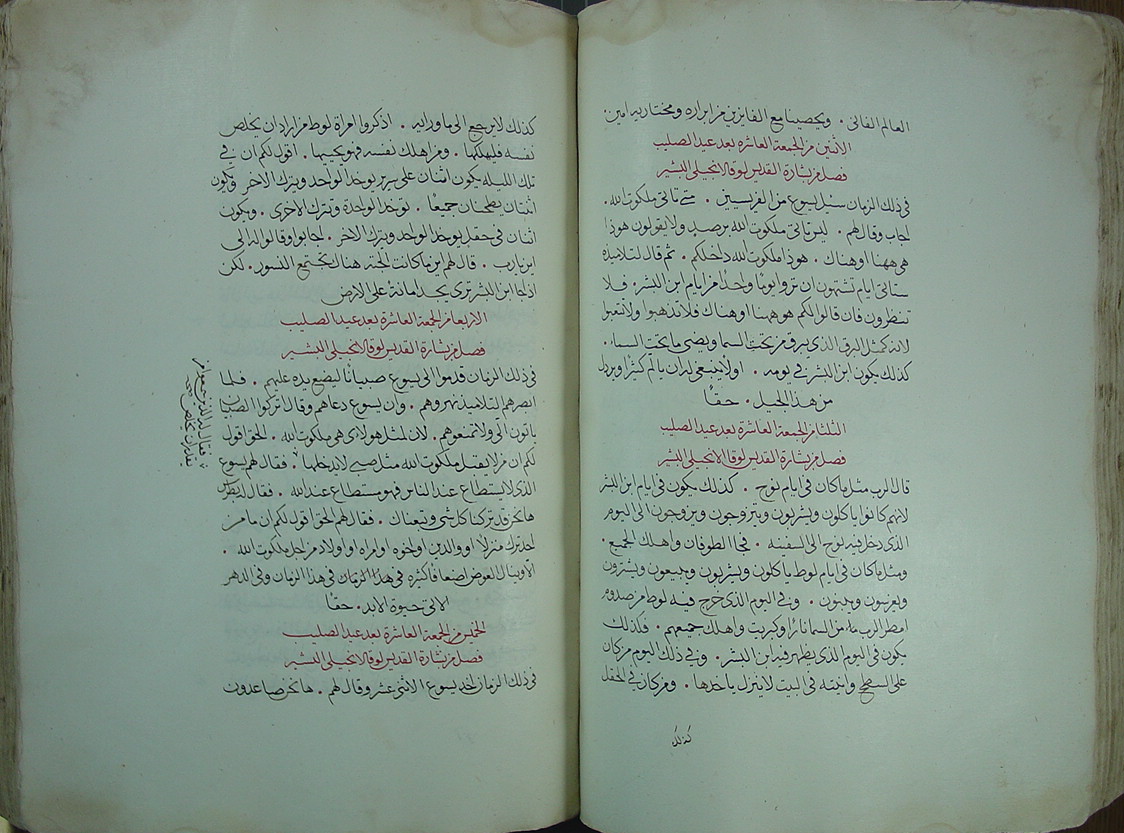 العالم الفانى . ويحصينا مع الفايزين من ابراره ومختاريه امين
الاثنين من الجمعة العاشره بعد عيد الصليب
فصل من بشارة القديس لوقا الانجيلى البشير
فى ذلك الزمان سيل يسوع من الفريسيين . متى تاتى ملكوت الله .
اجاب وقال لهم . ليس تاتى ملكوت الله برصد ولا يقولون هوذا
هى ههنا او هناك . هوذا ملكوت الله داخلكم . ثم قال لتلاميذه
ستاتى ايام تشتهون ان تروا يومًا واحدًا من ايام ابن البشر . فلا
تنظرون فان قالوا لكم هو ههنا او هناك فلا تذهبوا ولا تتبعوا
لانه كمثل البرق الذى يبرق من تحت السما ويضى ما تحت السما .
كذلك يكون ابن البشر فى يومه . اولا ينبغى له ان يالم كثيرًا ويرذل
من هذا الجيل . حقًا
الثلثا من الجمعة العاشرة بعد عيد الصليب
فصل من بشارة القديس لوقا الانجيلى البشير
قال الرب مثل ما كان فى ايام نوح . كذلك يكون فى ايام ابن البشر
لانهم كانوا ياكلون ويشربون ويتزوجون ويزوجون الى اليوم
الذى دخل فيه نوح الى السفينه . فجا الطوفان واهلك الجميع .
ومثل ما كان فى ايام لوط ياكلون ويشربون ويبيعون ويشترون
ويغرسون ويبنون . وفى اليوم الذى خرج فيه لوط من صدوم
امطر الرب من السما نارًا وكبريت واهلك جميعهم . فكذلك
يكون فى اليوم الذى يظهر فيه ابن البشر . وفى ذلك اليوم من كان
على السطح وانيته فى البيت لا ينزل ياخذها . ومن كان فى الحقل
كذلك
كذلك لا يرجع الى ما ورايه . اذكروا امراة لوط من اراد ان يخلص
نفسه فليهلكها . ومن اهلك نفسه فهو يحييها . اقول لكم ان فى
تلك الليله يكون اثنان على سرير يوخذ الواحد ويترك الاخر وتكون
اثنتان يطحنان جميعًا . توخذ الواحدة وتترك الاخرى . ويكون
اثنان فى حقل يوخذ الواحد ويترك الاخر . اجابوا وقالوا له الى
اين يارب . قال لهم اين ما كانت الجثه هناك تجتمع النسور . لكن
اذا جا ابن البشر ترى يجد امانة على الارض
الاربعا من الجمعة العاشرة بعد عيد الصليب
فصل من بشارة القديس لوقا الانجيلى البشير
فى ذلك الزمان قدموا الى يسوع صبيانًا ليضع يده عليهم . فلما
ابصرهم التلاميذ نهروهم . وان يسوع دعاهم وقال اتركوا الصبيان
ياتون الى ولا تمنعوهم . لان لمثل هولاى هى ملكوت الله . الحق اقول
لكم ان من لا يقبل ملكوت الله مثل صبى لا يدخلها . فقال لهم يسوع
الذى لا يستطاع عند الناس فهو مستطاع عند الله . فقال له بطرس
ها نحن قد تركنا كل شى وتبعناك . فقال لهم الحق اقول لكم ان ما من
احد ترك منزلًا او والدين او اخوه او امراه او اولاد من اجل ملكوت الله .
الا وينال العوض اضعافًا كثيره فى هذا الزمان فى هذا الزمان وفى الدهر
الاتى حيوة الابد . حقًا
الخميس من الجمعة العاشرة بعد عيد الصليب
فصل من بشارة القديس لوقا الانجيلى البشير
فى ذلك الزمان اخذ يسوع الاثنى عشر وقال لهم . ها نحن صاعدون
فقال له الذين سمعوا من
يقدر ان يخلص